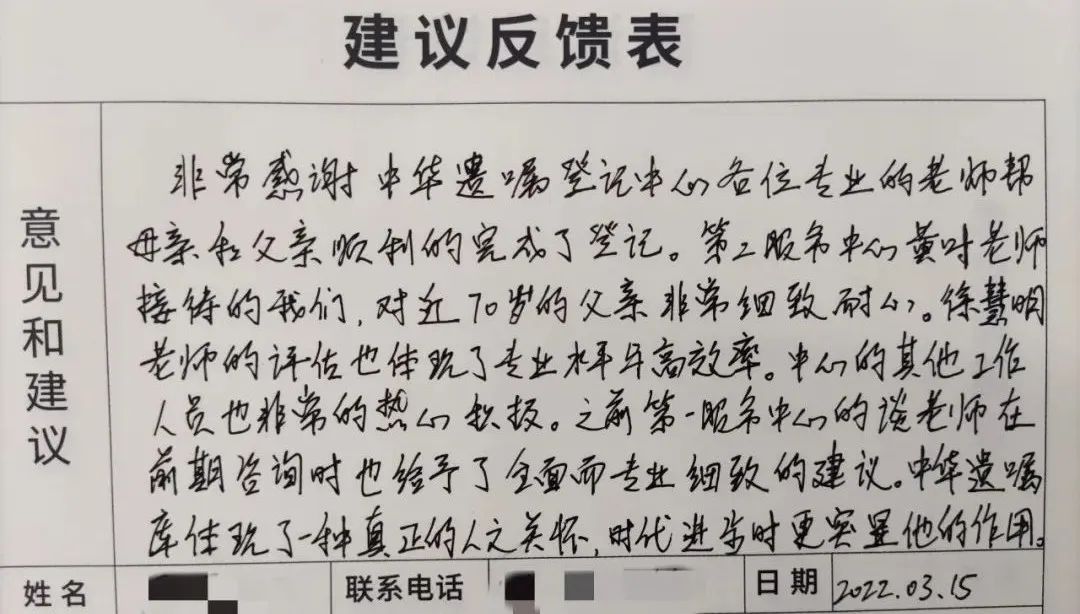 建议反馈表
意见和建议
非常感谢中华遗嘱登记中心各位专业的老师帮
母亲和父亲顺利的完成了登记。第二服务中心黄叶老师
接待的我们,对近70岁的父亲非常细致耐心。徐慧明
老师的评估也体现了专业水平与高效率。中心的其他工作
人员也非常的热心积极。之前第一服务中心的谈老师在
前期咨询时也给予了全面而专业细致的建议。中华遗嘱
库体现了一种真正的人文关怀,时代进步时更突显他的作用。
姓名
联系电话
日期 2022.03.15